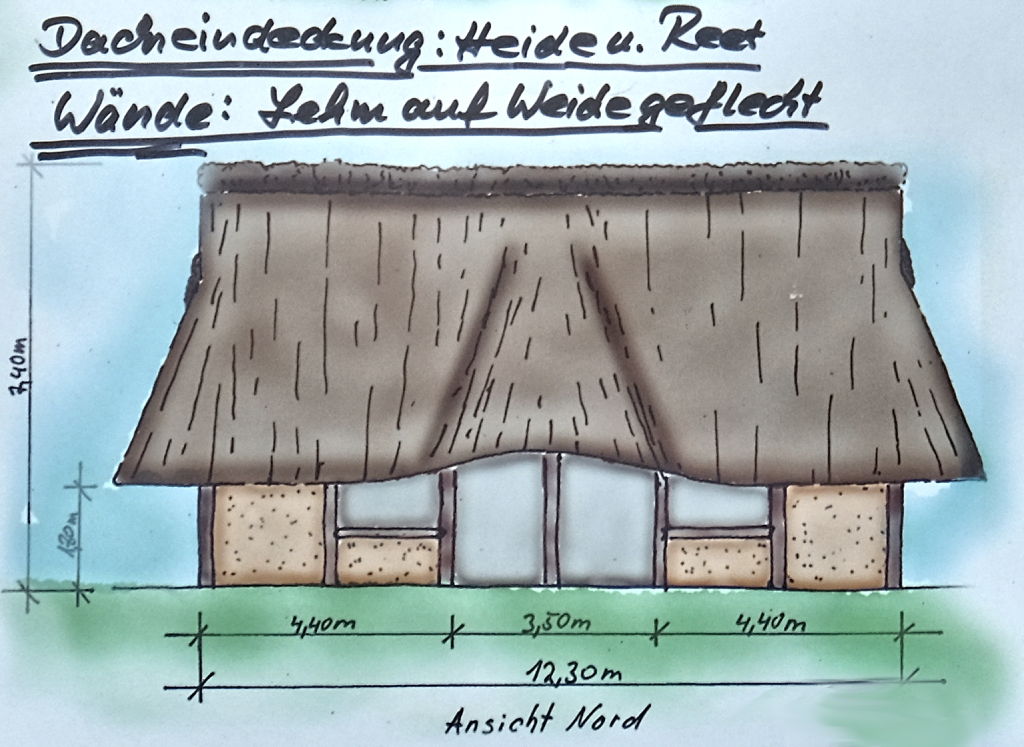 Dacheindeckung: Heide u. Reet
Wände: Lehm auf Weidegeflecht
7,40m
1,80m
4,40m 3,50m 4,40m
12,30m
Ansicht Nord